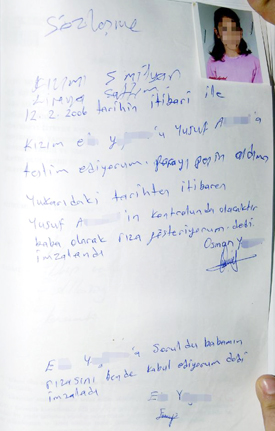 Sözleşme
Kızımı 5 milyan
Liraya Sattım
12-2-2006 tarihin itibari ile
Kızım E Y 'ü Yusuf A 'a
teslim ediyorum. parayı peşin aldım
Yukarıdaki tarihten itibaren
Yusuf A 'in kontrolunda olacaktır
baba olarak rıza gösteriyorum. dedi
imzalandı Osman Y
E Y 'a Soruldu babamın
rızasını bende kabul ediyorum dedi
imzaladı E Y